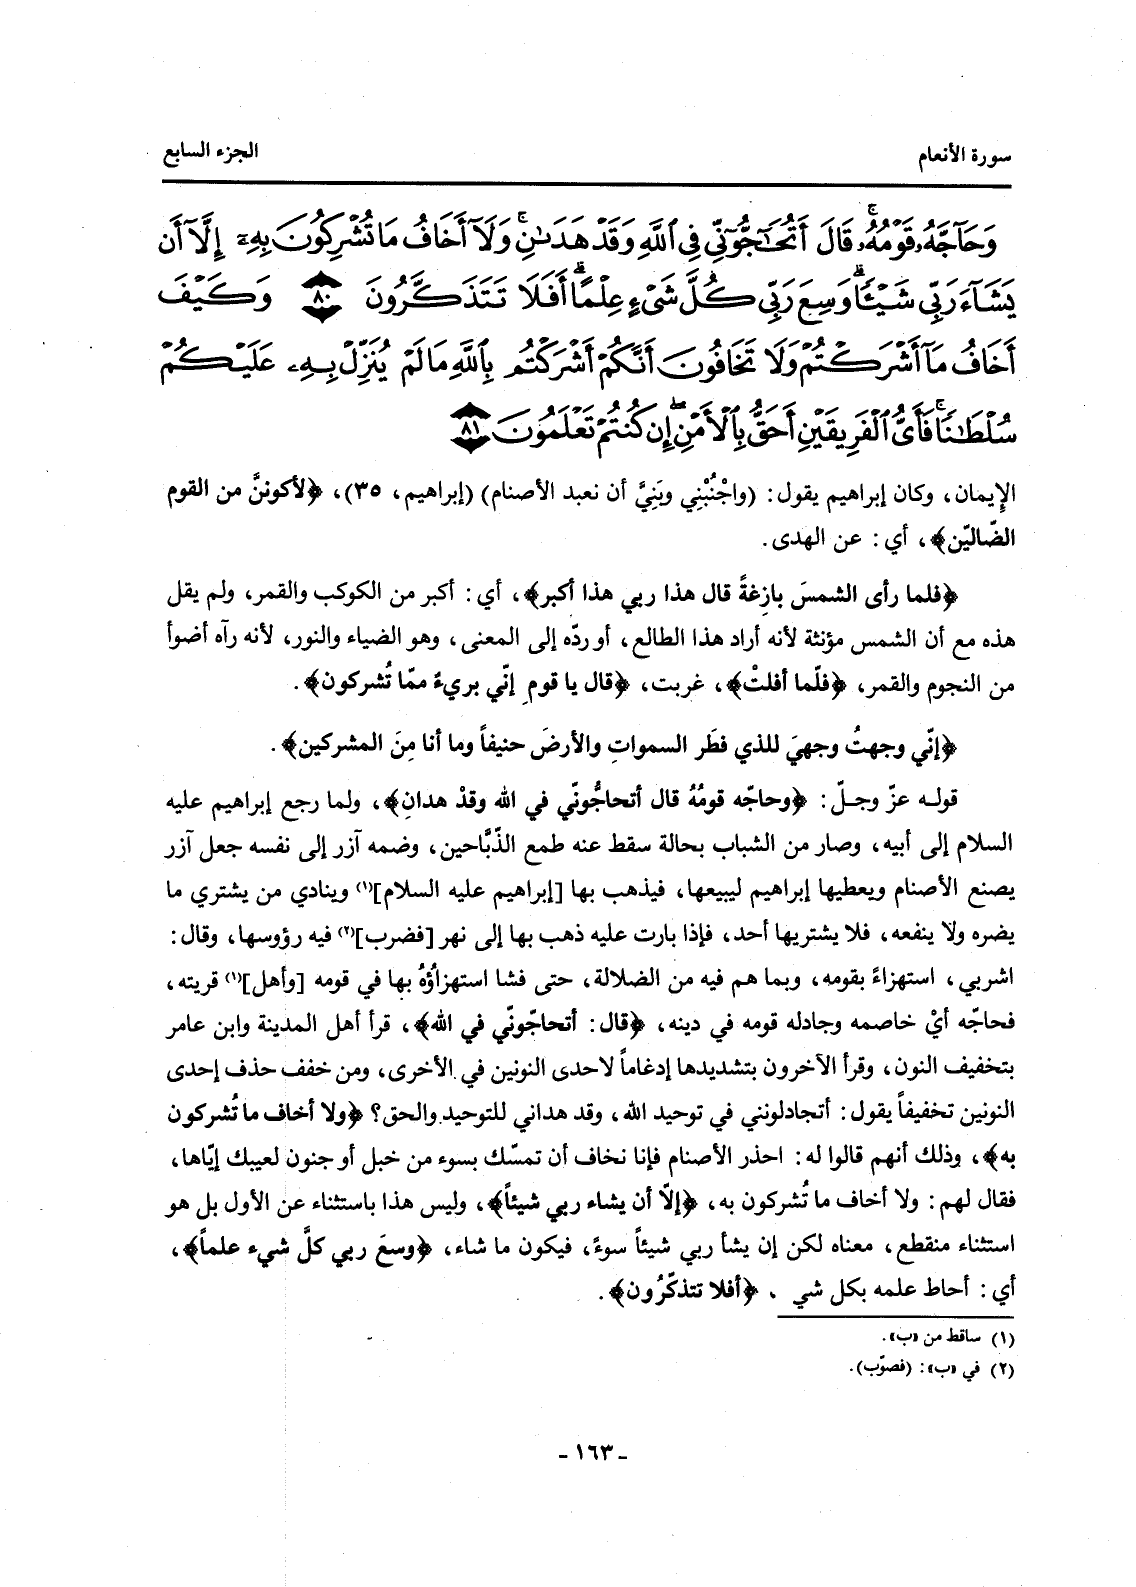 سورة الأنعام
الجزء السابع
وَحَآجَّهُۥ قَوْمُهُۥ ۚ قَالَ أَتُحَٰٓجُّوٓنِّى فِى ٱللَّهِ وَقَدْ هَدَىٰنِ ۚ وَلَآ أَخَافُ مَا تُشْرِكُونَ بِهِۦٓ إِلَّآ أَن
يَشَآءَ رَبِّى شَيْـًٔا ۗ وَسِعَ رَبِّى كُلَّ شَىْءٍ عِلْمًا ۗ أَفَلَا تَتَذَكَّرُونَ ٨٠ وَكَيْفَ
أَخَافُ مَآ أَشْرَكْتُمْ وَلَا تَخَافُونَ أَنَّكُمْ أَشْرَكْتُم بِٱللَّهِ مَا لَمْ يُنَزِّلْ بِهِۦ عَلَيْكُمْ
سُلْطَٰنًا ۚ فَأَىُّ ٱلْفَرِيقَيْنِ أَحَقُّ بِٱلْأَمْنِ ۖ إِن كُنتُمْ تَعْلَمُونَ ٨١
الإيمان، وكان إبراهيم يقول: (واجْنُبْنِي وبَنِيَّ أن نعبد الأصنام) (إبراهيم، ٣٥)، ﴿لأكوننَّ من القوم
الضّاليّن﴾، أي: عن الهدى.
﴿فلما رأى الشمسَ بازِغةً قال هذا ربي هذا أكبر﴾، أي: أكبر من الكوكب والقمر، ولم يقل
هذه مع أن الشمس مؤنثة لأنه أراد هذا الطالع، أو ردّه إلى المعنى، وهو الضياء والنور، لأنه رآه أضوأ
من النجوم والقمر، ﴿فلّما أفلتْ﴾، غربت، ﴿قال يا قومِ إنّي بريءٌ ممّا تُشركون﴾.
﴿إنّي وجهتُ وجهيَ للذي فطَر السمواتِ والأرضَ حنيفاً وما أنا مِنَ المشركين﴾.
قوله عزّ وجلّ: ﴿وحاجّه قومُهُ قال أتحاجُّونّي في الله وقدْ هدانِ﴾، ولما رجع إبراهيم عليه
السلام إلى أبيه، وصار من الشباب بحالة سقط عنه طمع الذّبَّاحين، وضمه آزر إلى نفسه جعل آزر
يصنع الأصنام ويعطيها إبراهيم ليبيعها، فيذهب بها [إبراهيم عليه السلام](١) وينادي من يشتري ما
يضره ولا ينفعه، فلا يشتريها أحد، فإذا بارت عليه ذهب بها إلى نهر [فضرب](٢) فيه رؤوسها، وقال:
اشربي، استهزاءً بقومه، وبما هم فيه من الضلالة، حتى فشا استهزاؤُهُ بها في قومه [وأهل](١) قريته،
فحاجّه أيْ خاصمه وجادله قومه في دينه، ﴿قال: أتحاجّونّي في الله﴾، قرأ أهل المدينة وابن عامر
بتخفيف النون، وقرأ الآخرون بتشديدها إدغاماً لاحدى النونين في الأخرى، ومن خفف حذف إحدى
النونين تخفيفاً يقول: أتجادلونني في توحيد الله، وقد هداني للتوحيد والحق؟ ﴿ولا أخاف ما تُشركون
به﴾، وذلك أنهم قالوا له: احذر الأصنام فإنا نخاف أن تمسّك بسوء من خبل أو جنون لعيبك إيّاها،
فقال لهم: ولا أخاف ما تُشركون به، ﴿إلّا أن يشاء ربي شيئاً﴾، وليس هذا باستثناء عن الأول بل هو
استثناء منقطع، معناه لكن إن يشأ ربي شيئاً سوءً، فيكون ما شاء، ﴿وسعَ ربي كلَّ شيء علماً﴾،
أي: أحاط علمه بكل شي ، ﴿أفلا تتذكّرُون﴾.
(١) ساقط من «ب».
(٢) في «ب»: (فصوّب).
ـ ١٦٣ ـ